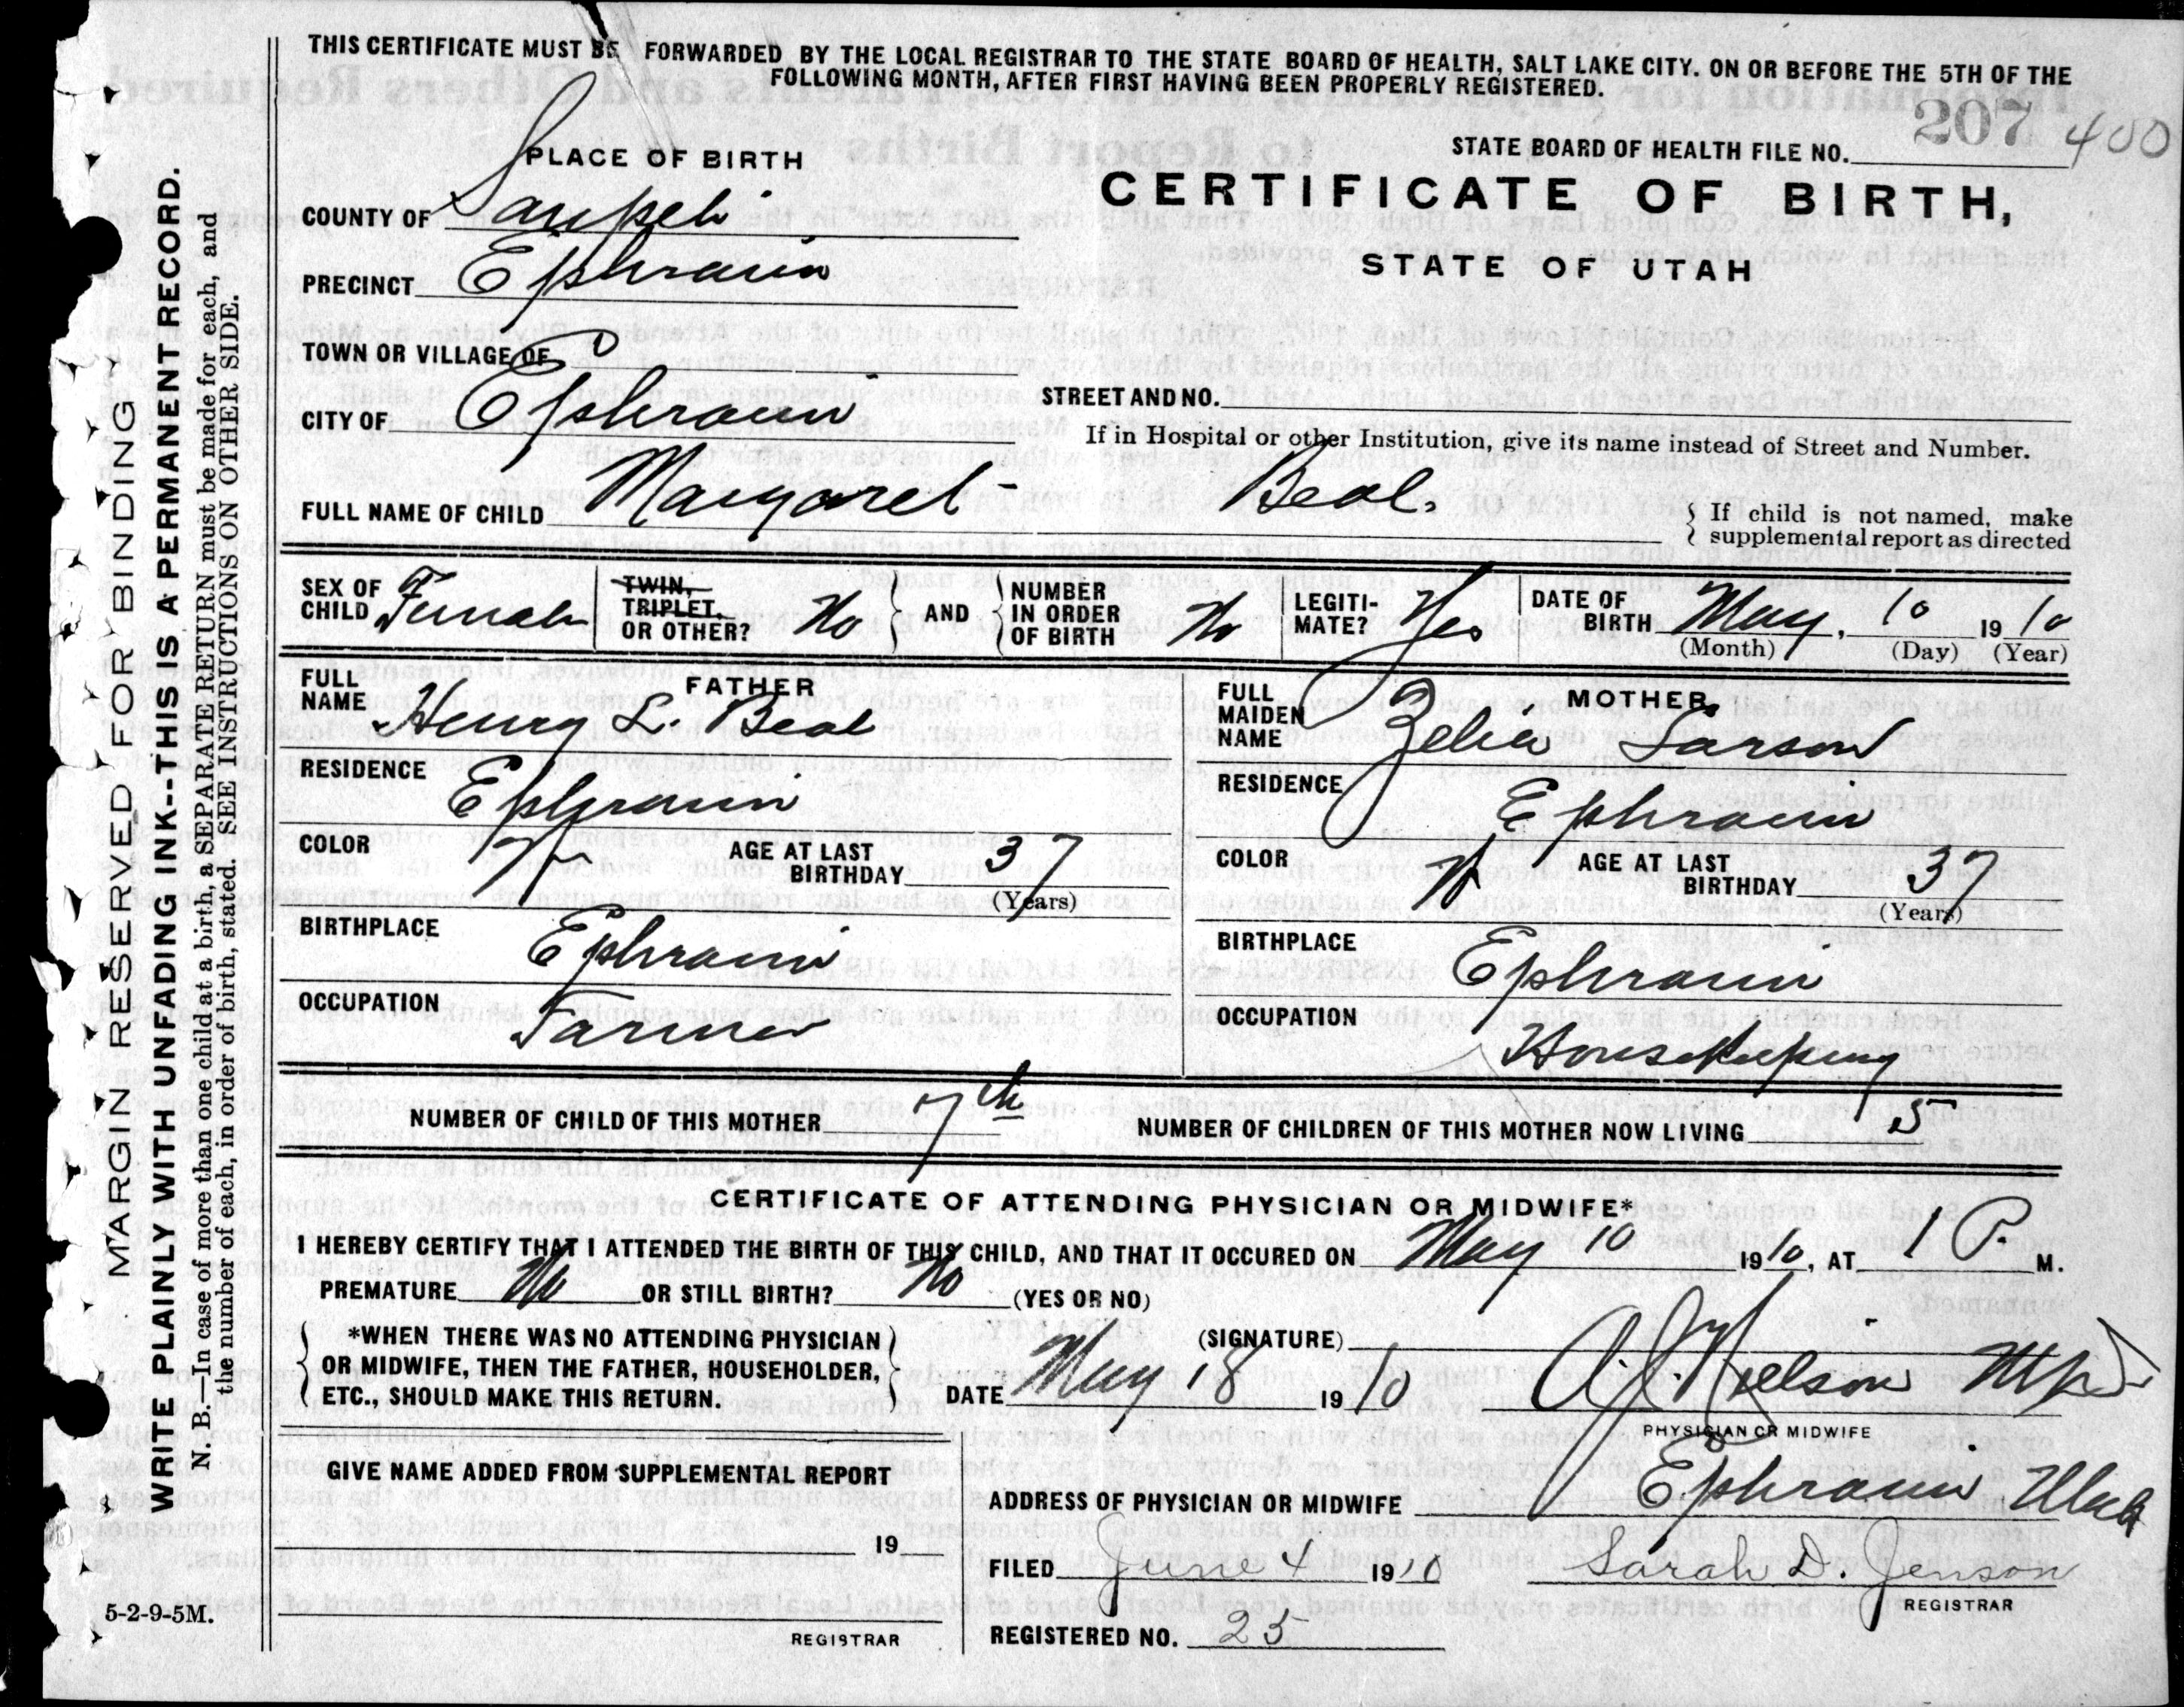 THIS CERTIFICATE MUST BE FORWARDED BY THE LOCAL REGISTRAR TO THE STATE BOARD OF HEALTH, SALT LAKE CITY. ON OR BEFORE THE 5TH OF THE
FOLLOWING MONTH, AFTER FIRST HAVING BEEN PROPERLY REGISTERED.
207 400
STATE BOARD OF HEALTH FILE NO.
PLACE OF BIRTH
CERTIFICATE OF BIRTH,
STATE OF UTAH
COUNTY OF Sanpete
PRECINCT Ephraim
TOWN OR VILLAGE OF
CITY OF Ephraim
STREET AND NO.
If in Hospital or other Institution, give its name instead of Street and Number.
FULL NAME OF CHILD Margaret Beal.
{ If child is not named, make
supplemental report as directed
SEX OF CHILD Female
TWIN, TRIPLET, OR OTHER? No
AND
NUMBER IN ORDER OF BIRTH No
LEGITI-MATE? Yes
DATE OF BIRTH May, 10 1910
(Month) (Day) (Year)
FATHER
FULL NAME Henry L. Beal
RESIDENCE Ephraim
COLOR W
AGE AT LAST BIRTHDAY 37
(Years)
BIRTHPLACE Ephraim
OCCUPATION Farmer
MOTHER
FULL MAIDEN NAME Zelia Larson
RESIDENCE Ephraim
COLOR W
AGE AT LAST BIRTHDAY 37
(Years)
BIRTHPLACE Ephraim
OCCUPATION Housekeeping
NUMBER OF CHILD OF THIS MOTHER 7th
NUMBER OF CHILDREN OF THIS MOTHER NOW LIVING 5
CERTIFICATE OF ATTENDING PHYSICIAN OR MIDWIFE*
I HEREBY CERTIFY THAT I ATTENDED THE BIRTH OF THIS CHILD, AND THAT IT OCCURED ON May 10 1910, AT 1 P. M.
PREMATURE No OR STILL BIRTH? No (YES OR NO)
*WHEN THERE WAS NO ATTENDING PHYSICIAN
OR MIDWIFE, THEN THE FATHER, HOUSEHOLDER,
ETC., SHOULD MAKE THIS RETURN.
(SIGNATURE) Nielson MD
DATE May 18 1910
PHYSICIAN OR MIDWIFE
GIVE NAME ADDED FROM SUPPLEMENTAL REPORT
19
REGISTRAR
ADDRESS OF PHYSICIAN OR MIDWIFE Ephraim Utah
FILED June 4 1910
Sarah D. Jenson
REGISTRAR
REGISTERED NO. 25
MARGIN RESERVED FOR BINDING
WRITE PLAINLY WITH UNFADING INK--THIS IS A PERMANENT RECORD.
N. B.—In case of more than one child at a birth, a SEPARATE RETURN must be made for each, and
the number of each, in order of birth, stated. SEE INSTRUCTIONS ON OTHER SIDE.
5-2-9-5M.